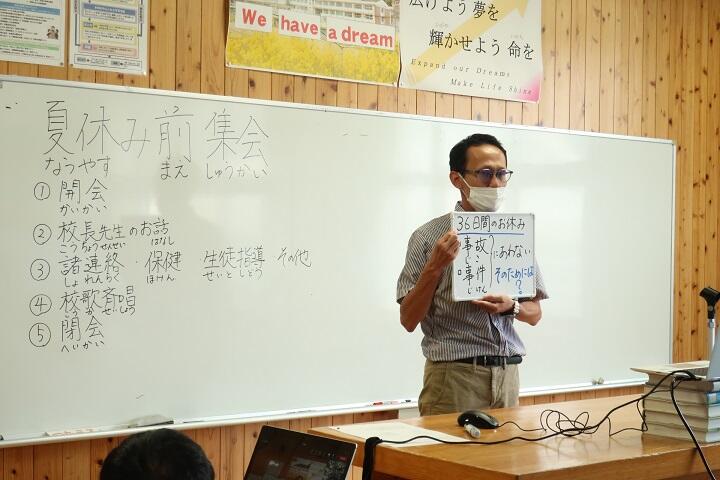 We have a dream
広げよう 夢を
輝かせよう 命を
Expand our Dreams
Make Life Shine
夏休み前 集会
なつやす まえ しゅうかい
① 開会
かいかい
② 校長先生のお話
こうちょうせんせい はなし
③ 諸連絡・保健 生徒指導 その他
しょれんらく ほけん せいとしどう
④ 校歌斉唱
こうかせいしょう
⑤ 閉会
へいかい
36日間のお休み
事故
じこ
事件
じけん
にあわない
そのためには?